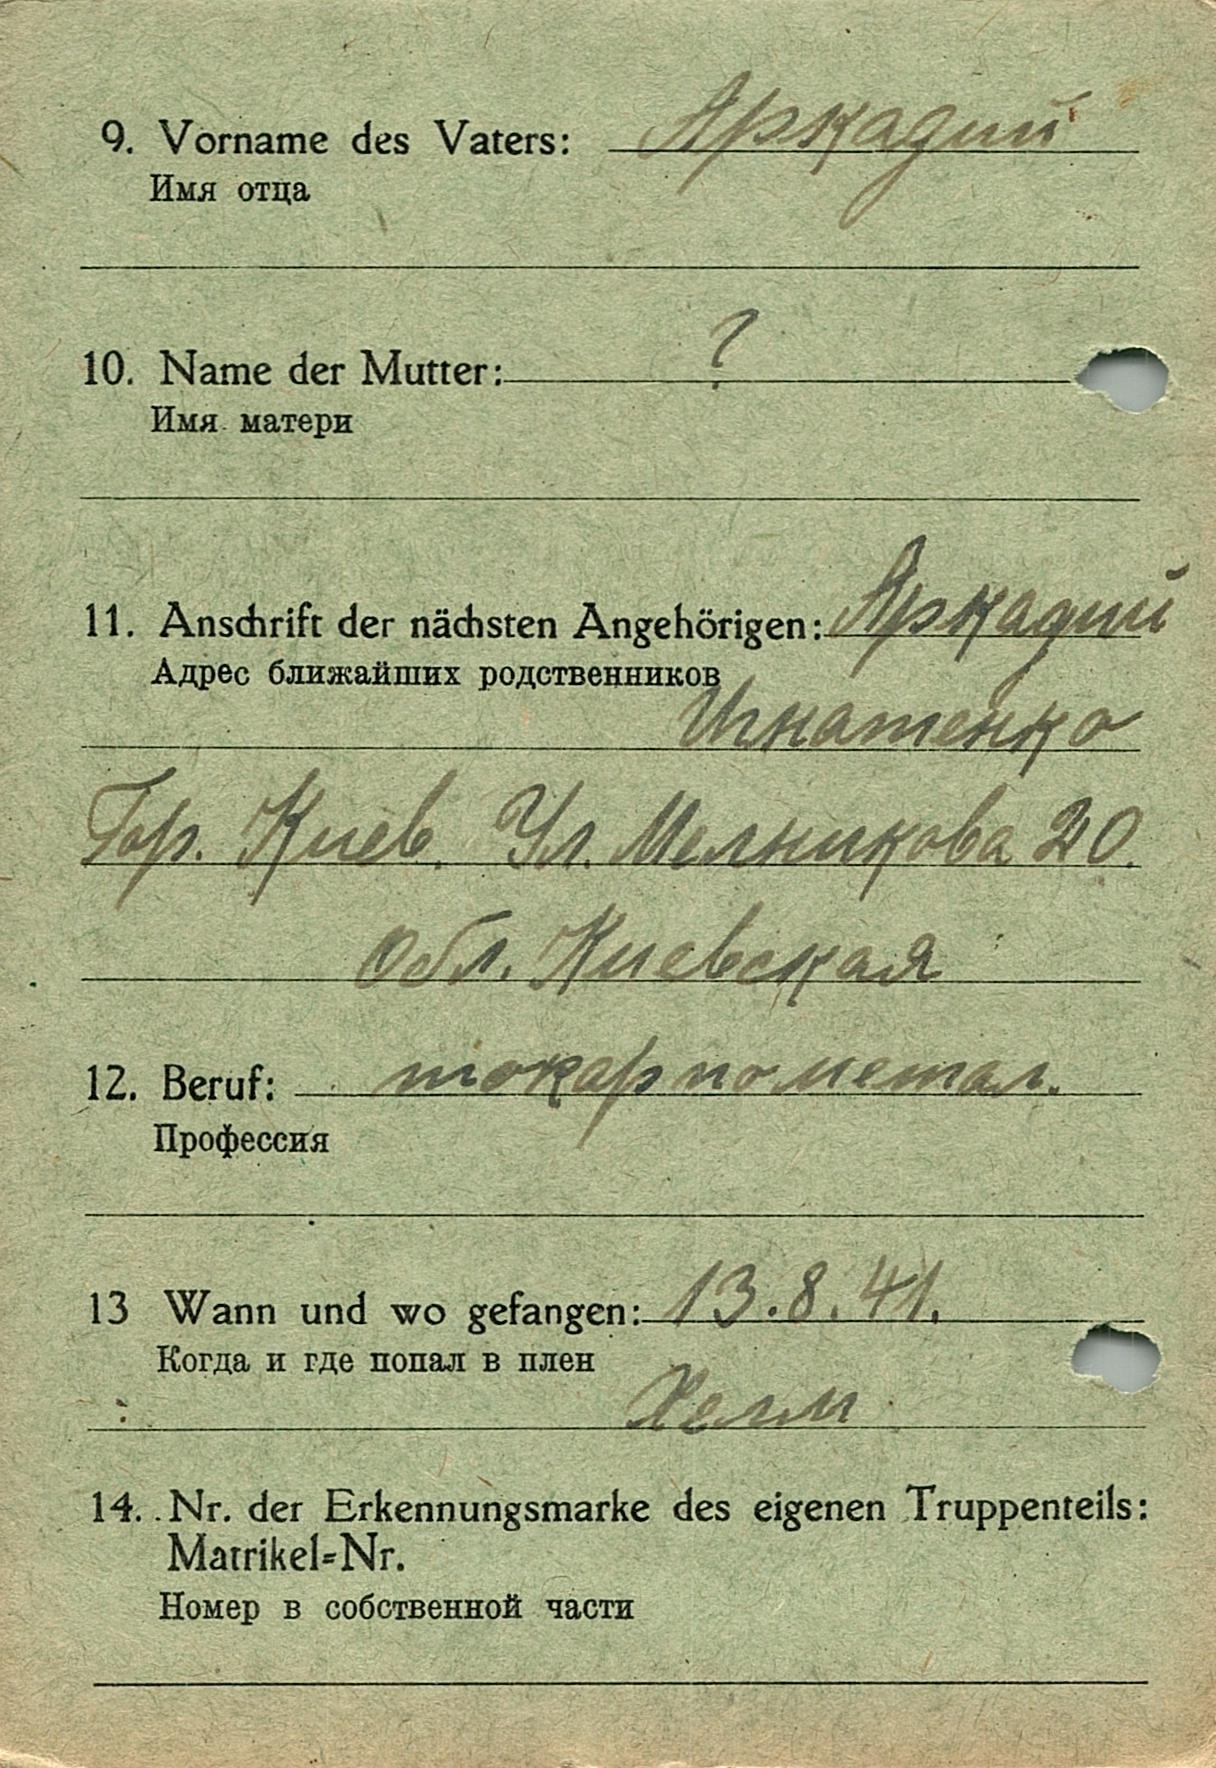 9. Vorname des Vaters: Аркадий
Имя отца
10. Name der Mutter: ?
Имя матери
11. Anschrift der nächsten Angehörigen: Аркадий
Адрес ближайших родственников
Игнатенко
Гор. Киев. Ул. Мелникова 20.
Обл. Киевская
12. Beruf: токар по метал.
Профессия
13 Wann und wo gefangen: 13.8.41.
Когда и где попал в плен
Хелм
14. Nr. der Erkennungsmarke des eigenen Truppenteils:
Matrikel=Nr.
Номер в собственной части